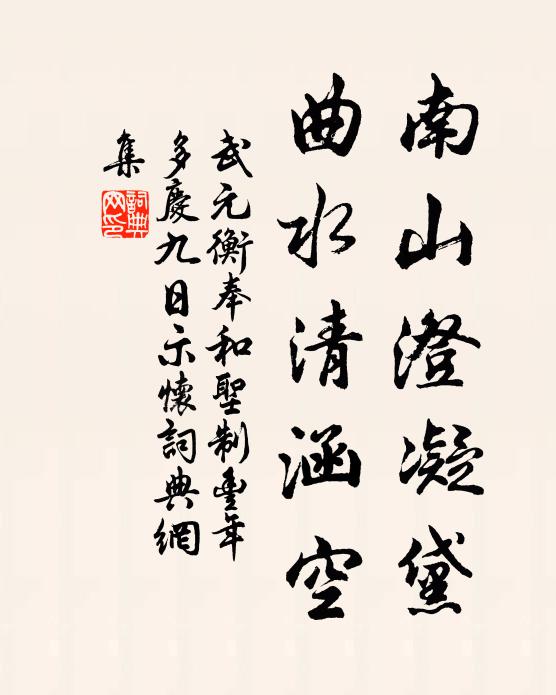 南山澄凝黛
曲水清涵空
武元衡奉和聖制豐年
多慶九日示懷詞典網
集
詞典
网印